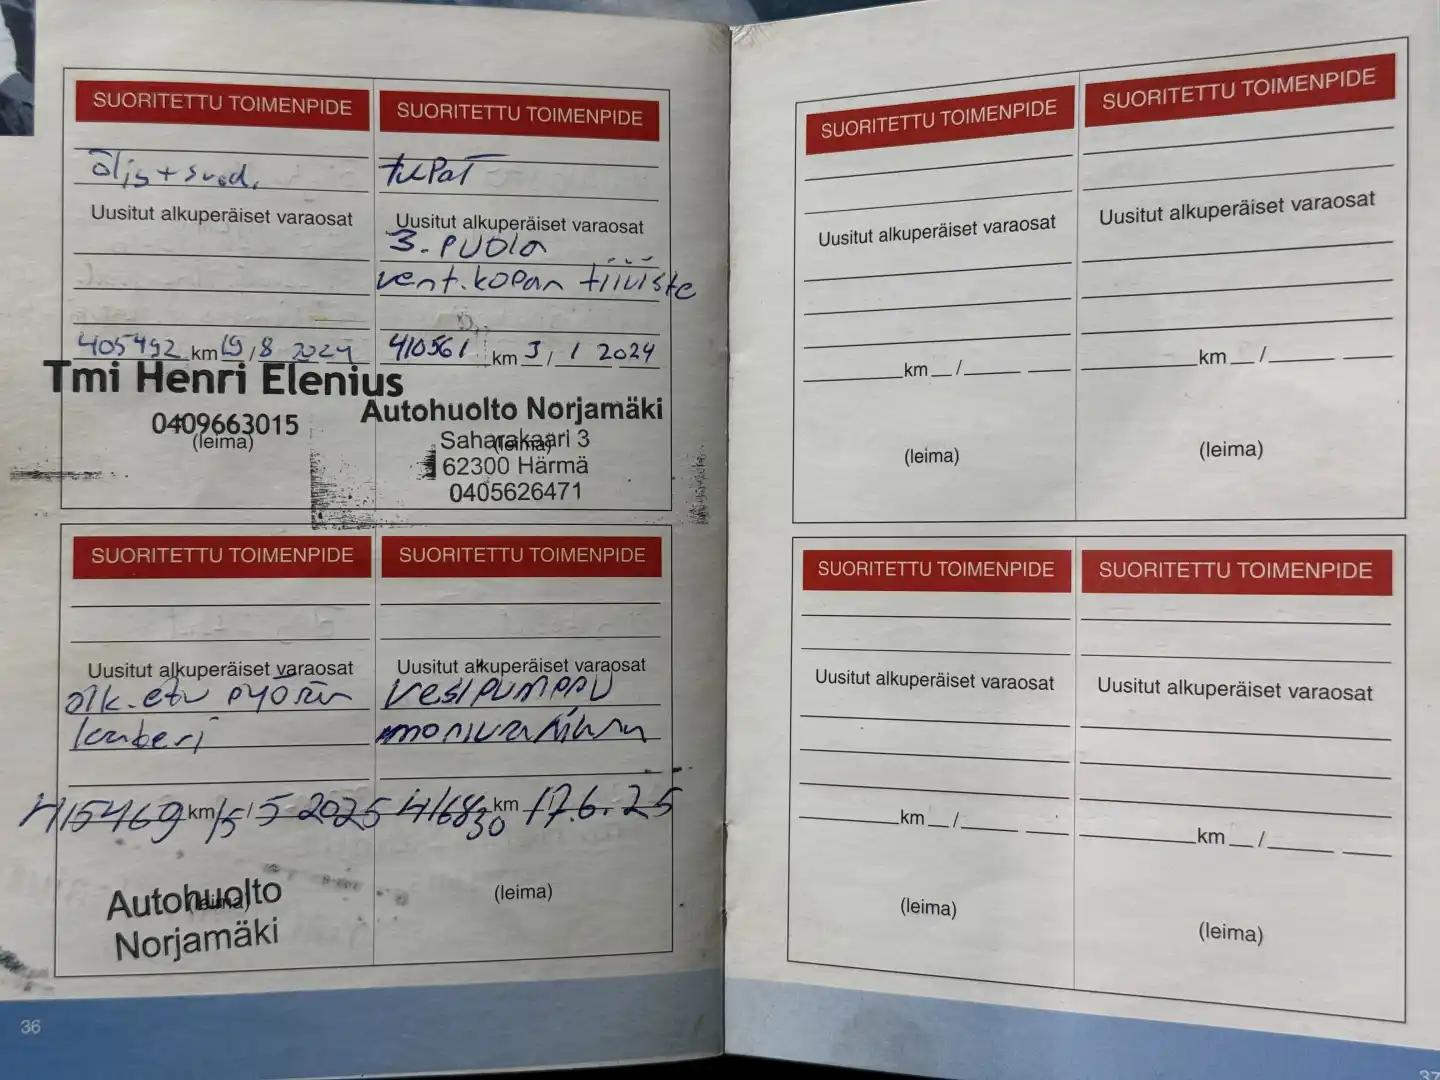 SUORITETTU TOIMENPIDE
öljy + suod.
Uusitut alkuperäiset varaosat
405492 km 19 / 8 2024
Tmi Henri Elenius
0409663015
(leima)
SUORITETTU TOIMENPIDE
tulpat
Uusitut alkuperäiset varaosat
3. puola
vent.kopan tiiviste
410561 km 3 / 1 2024
Autohuolto Norjamäki
Saharakaari 3
(leima)
62300 Härmä
0405626471
SUORITETTU TOIMENPIDE
Uusitut alkuperäiset varaosat
etu pyörän
laakeri
415469 km 15 / 5 2025
(leima)
Autohuolto
Norjamäki
SUORITETTU TOIMENPIDE
Uusitut alkuperäiset varaosat
vesipumppu
moniurahihna
416830 km 17.6.25
(leima)
36
SUORITETTU TOIMENPIDE
Uusitut alkuperäiset varaosat
km __ / ____ ____
(leima)
SUORITETTU TOIMENPIDE
Uusitut alkuperäiset varaosat
km __ / ____ ____
(leima)
SUORITETTU TOIMENPIDE
Uusitut alkuperäiset varaosat
km __ / ____ ____
(leima)
SUORITETTU TOIMENPIDE
Uusitut alkuperäiset varaosat
km __ / ____ ____
(leima)
37